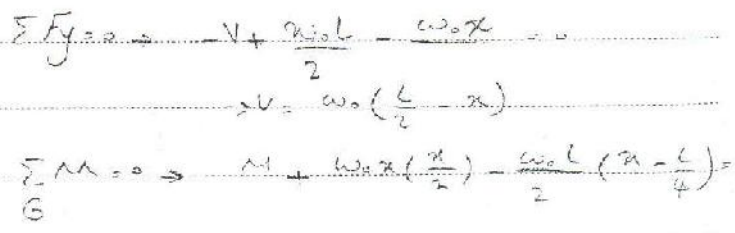 ΣFy=0 → -V + w₀L/2 - w₀x = 0
→ V = w₀(L/2 - x)
ΣM=0 → M + w₀x(x/2) - w₀L/2 (x - L/4) =
G